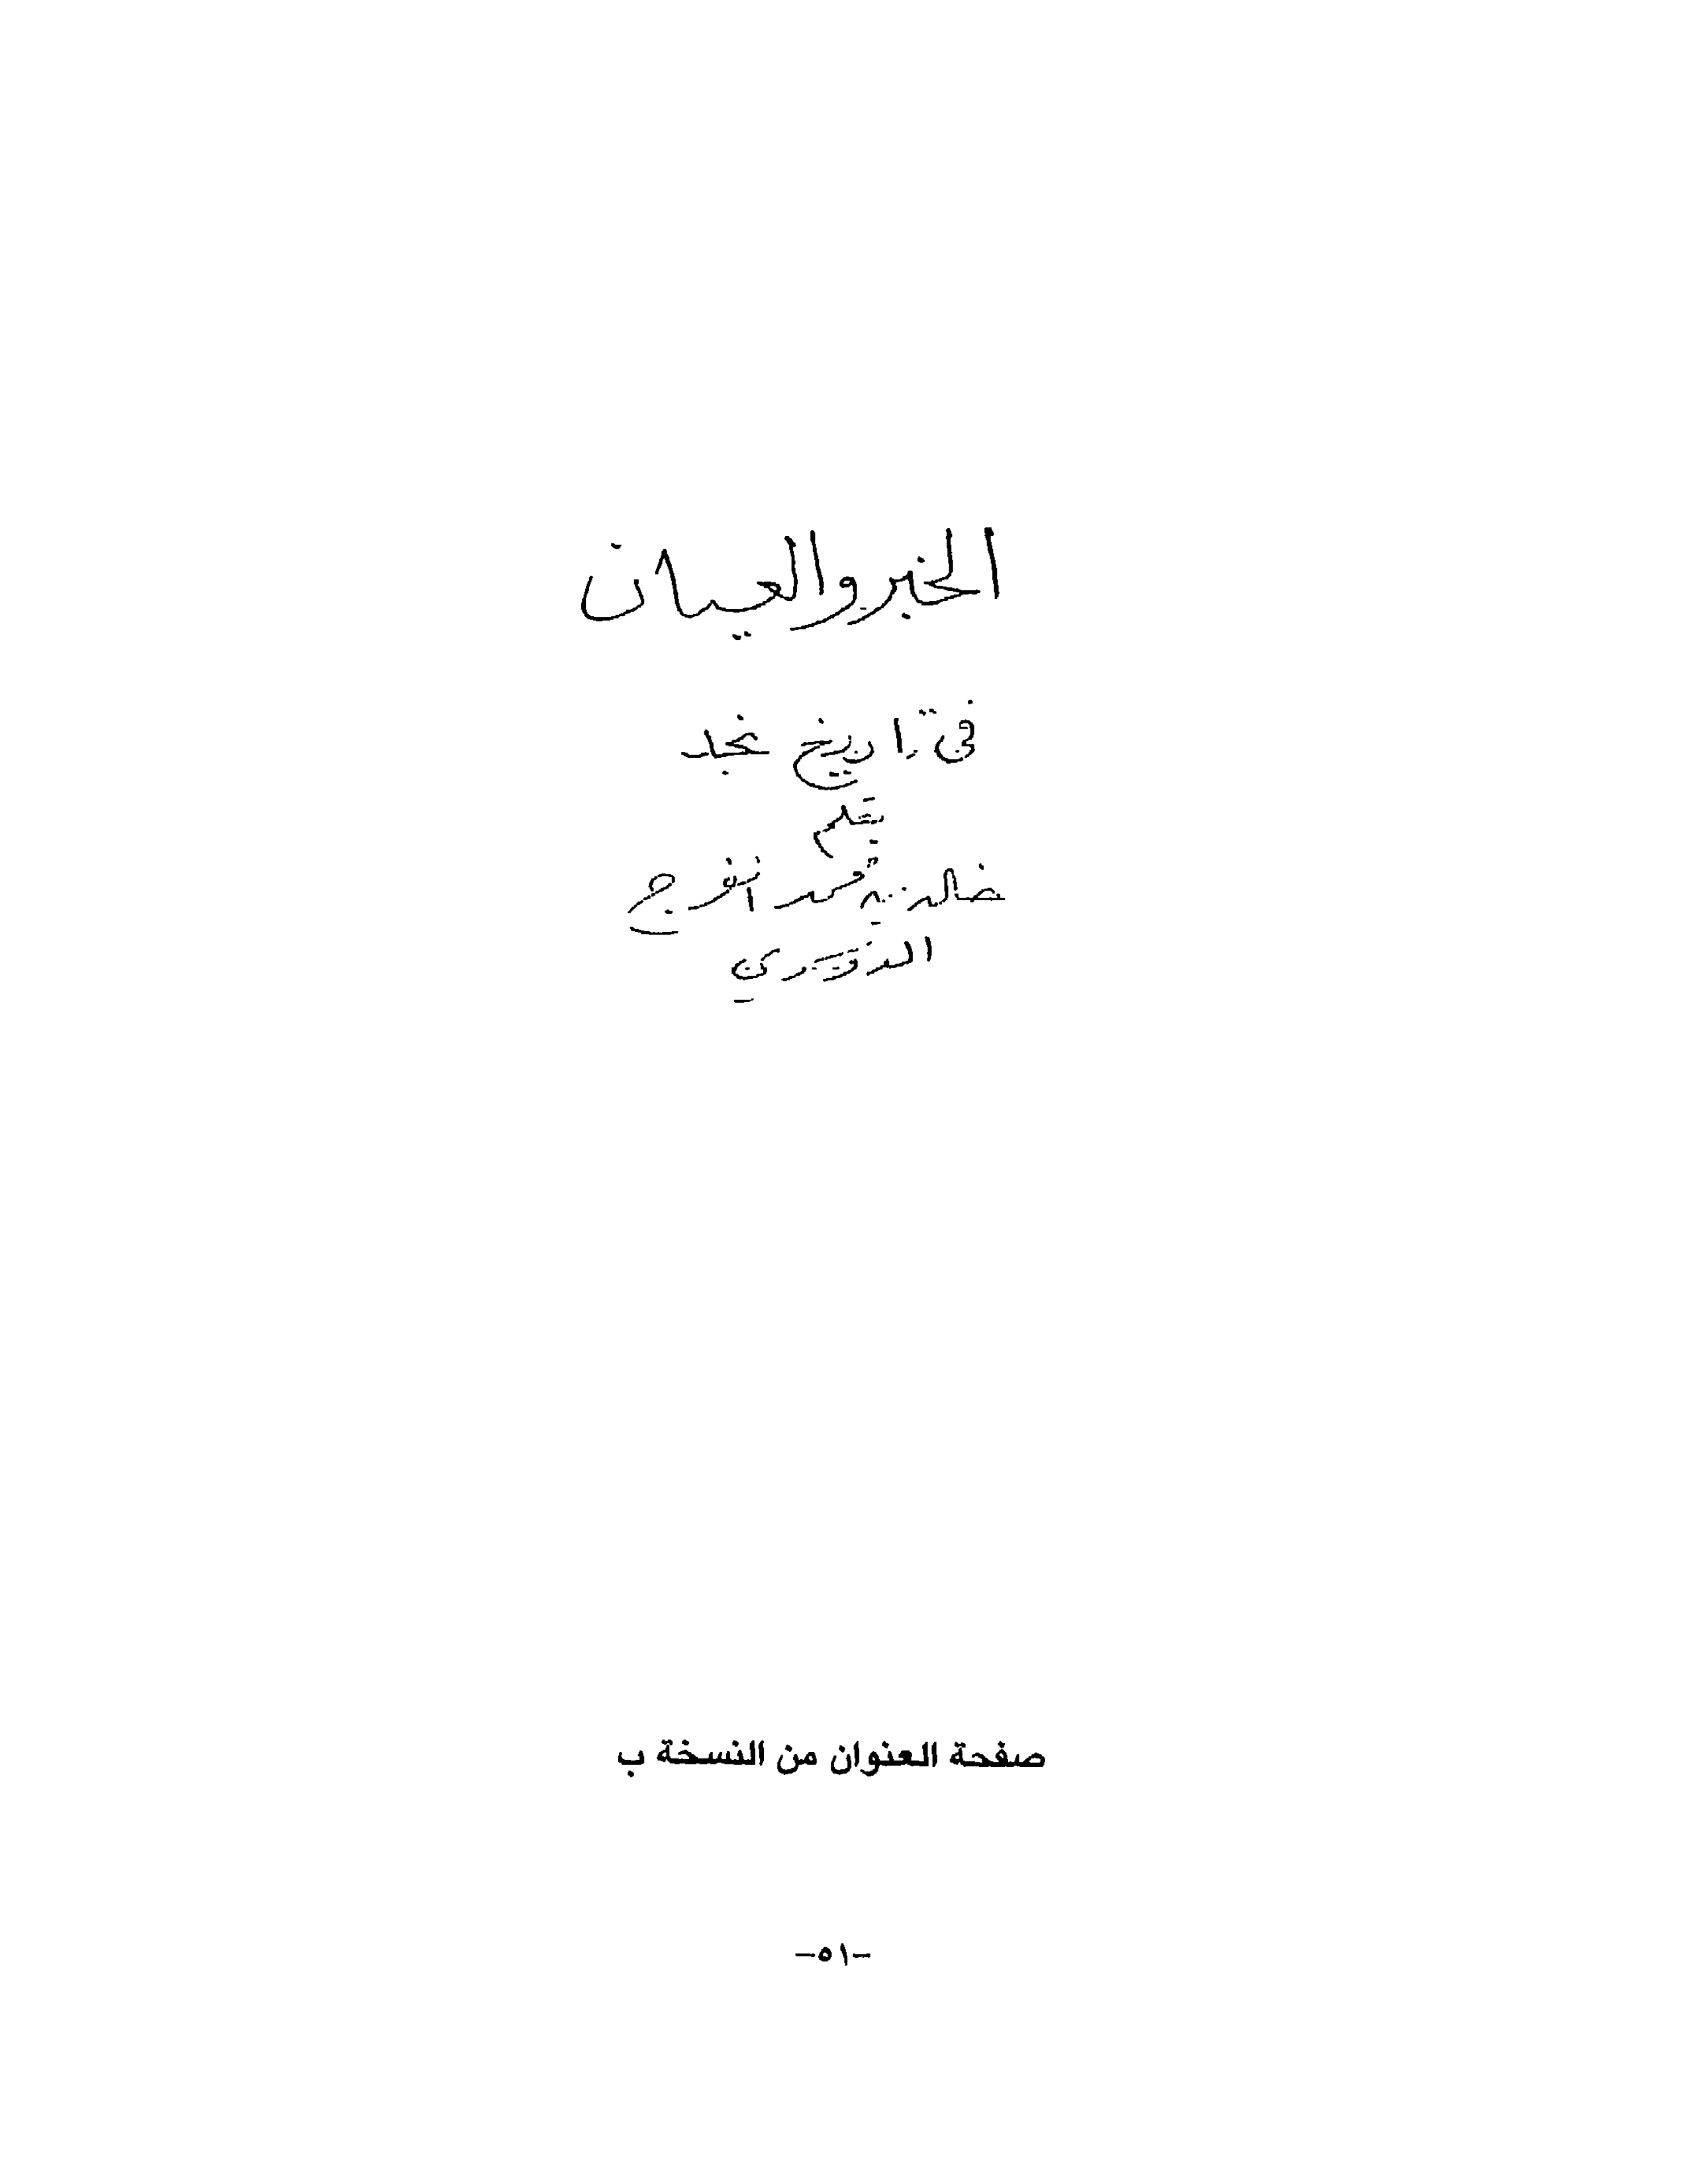 الخبر والعيان
في تاريخ نجد
بقلم
خالد بن محمد الفرج
الدوسري
صفحة العنوان من النسخة ب
-٥١-